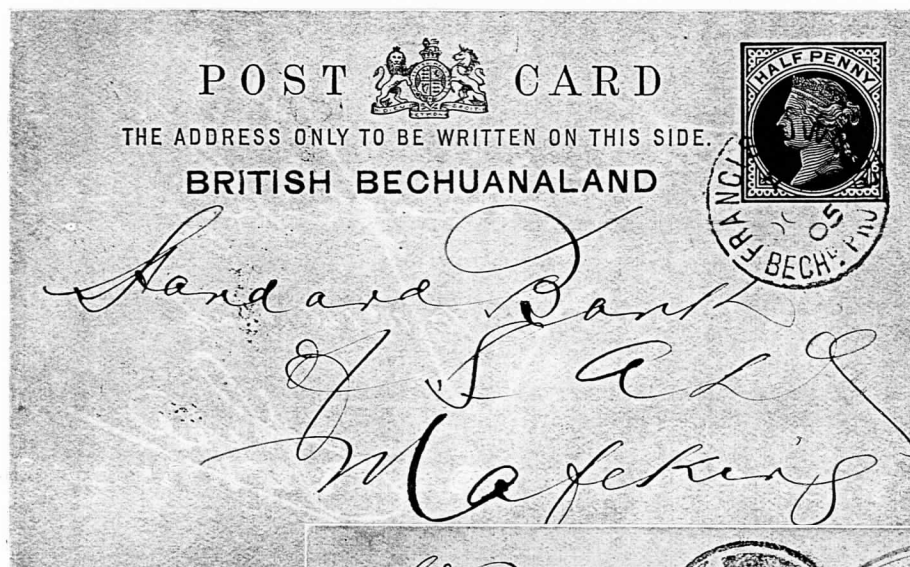 POST CARD
THE ADDRESS ONLY TO BE WRITTEN ON THIS SIDE.
BRITISH BECHUANALAND
HALF PENNY
FRANCIS
05
BECH. PRO
Standard Bank
of S A Ld
Mafeking